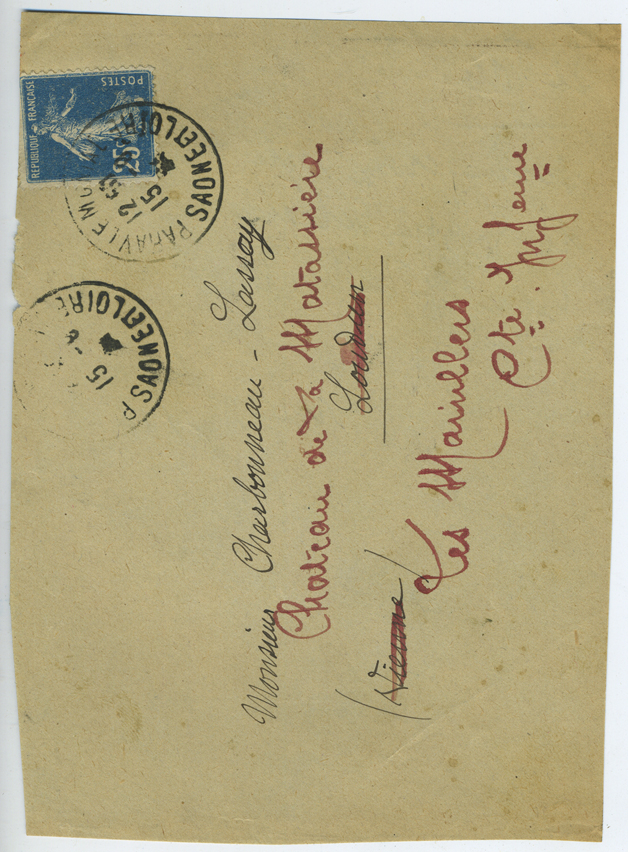 Monsieur Charbonneau-Lassay
Chateau de la Matassière
Loudun
(Vienne)
Les Mainlbers
Cte. Infeme
REPUBLIQUE FRANÇAISE
POSTES
25c
PARAY LE MONIAL
12 50
15
SAONE ET LOIRE
P
15
SAONE ET LOIRE